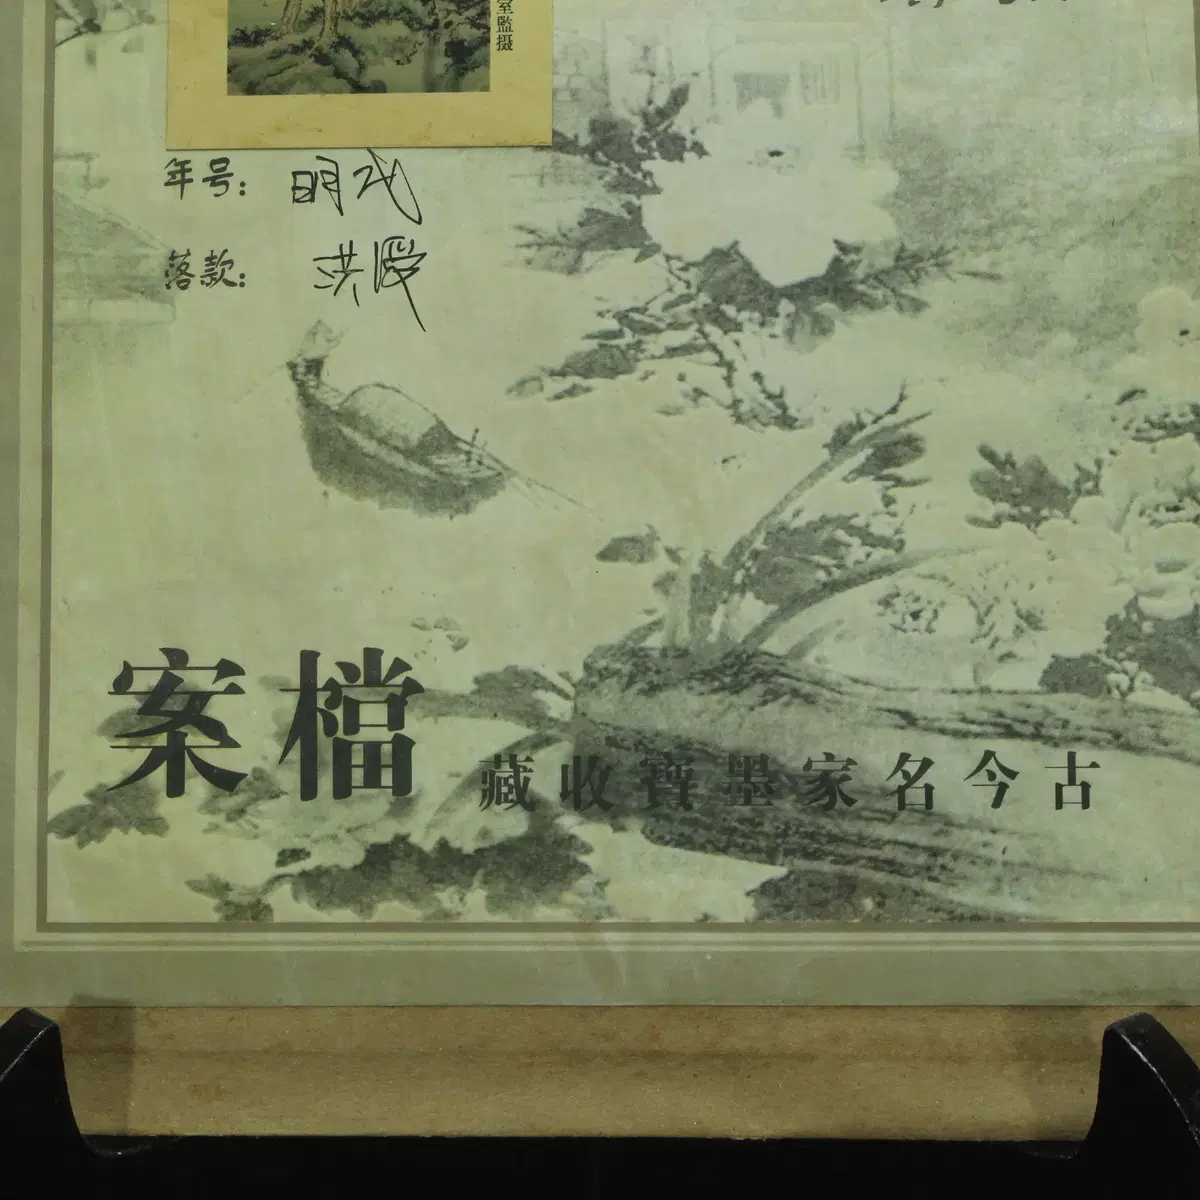 室監摄
年号: 明代
落款: 洪
檔案
古今名家墨寶收藏